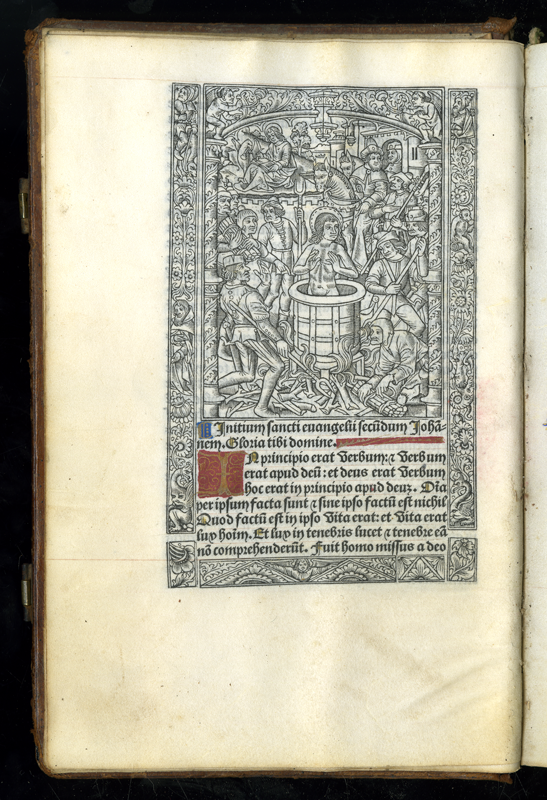 Initium sancti euangelii secūdum Johā
nem. Gloria tibi domine.
IN principio erat Verbum: ⁊ Verbum
erat apud deū: et deus erat Verbum
hoc erat in principio apud deuȝ. Oīa
per ipsum facta sunt ⁊ sine ipso factū est nichil
Quod factū est in ipso Vita erat: et Vita erat
lux hoīm. Et lux in tenebris lucet ⁊ tenebre eā
nō comprehenderūt. Fuit homo missus a deo